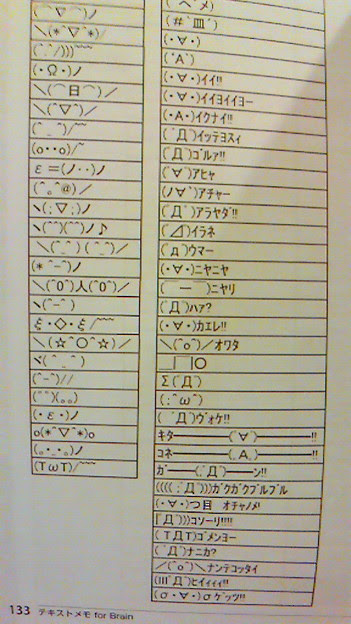 (⌒▽⌒)ノ
＼(*ˊ▽ˋ*)/
(ˆ.ˆ/)))~~~
(・Ω・)ノ
＼(⌒日⌒)／
＼(ˆ▽ˆ)／
(ˆ_ˆ)/~~
(o・・o)/~
ε＝(ノ・・)ノ
(ˆ。ˆ@)／
ヽ(；▽；)ノ
ヽ(ˆˆ)(ˆˆ)ノ♪
＼(ˆ_ˆ) (ˆ_ˆ)／
(*ˆ-ˆ)ノ
＼(ˆ0ˆ)人(ˆ0ˆ)／
ヽ(ˆ-ˆ)
ξ・◇・ξ/~~~
＼(☆ˆ○ˆ☆)／
ヾ(ˆ_ˆ)
(ˆ-ˆ)//
(ˆˆ)(。。)
(・ε・)ノ
o(*ˆ▽ˆ*)o
(。・_・。)ノ
(TωT)/~~~
(#ﾟ皿ﾟ)
(・∀・)
(ﾟAﾟ)
(・∀・)イイ!!
(・∀・)イイヨイイヨー
(・A・)イクナイ!!
(ﾟДﾟ)イッテヨスィ
(ﾟДﾟ)ゴルァ!!
(ﾟ∀ﾟ)アヒャ
(ノ∀`)アチャー
(ﾟДﾟ)アラヤダ!!
(ﾟ⊿ﾟ)イラネ
(ﾟдﾟ)ウマー
(・∀・)ニヤニヤ
(￣ー￣)ニヤリ
(ﾟДﾟ)ハァ?
(・∀・)カエレ!!
＼(ˆoˆ)／オワタ
＿|￣|○
Σ(ﾟДﾟ)
(；ˆωˆ)
(ﾟДﾟ)ヴォケ!!
キタ━━━(ﾟ∀ﾟ)━━━!!
コネ━━━(.A.)━━━!!
ガ━━(;ﾟДﾟ)━━ン!!
((((；ﾟДﾟ)))ガクガクブルブル
(・∀・)つ目 オチャノメ!
|Дﾟ)))コソーリ!!!!
(TДT)ゴメンヨー
(ﾟДﾟ)ナニカ?
／(ˆoˆ)＼ナンテコッタイ
(lllﾟДﾟ)ヒイィィィ!!
(σ・∀・)σゲッツ!!
133 テキストメモ for Brain